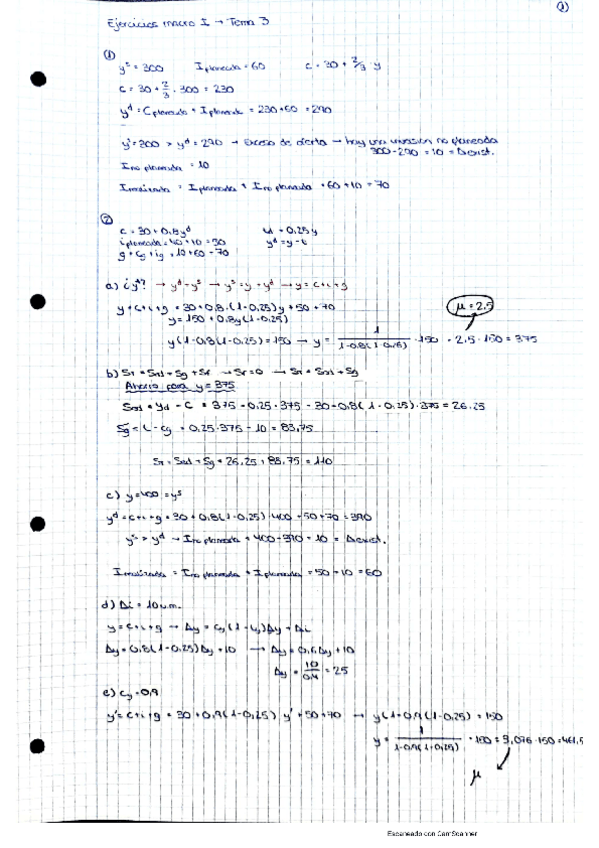 ①
Ejercicios macro I → Tema 3
①
yˢ = 300 Iplaneada = 60 c = 30 + 2/3 y
c = 30 + 2/3 · 300 = 230
yᵈ = Cplaneado + Iplaneada = 230+60 = 290
yˢ=300 > yᵈ = 290 → Exceso de oferta → hay una inversión no planeada
300-290 = 10 = Δexist.
Ino planeada = 10
Irealizada = Iplaneada + Ino planeada = 60+10 = 70
②
c = 30 + 0,8yᵈ = 0,25y
iplaneada = 40+10 = 50 yᵈ = y - t
g = cg + ig = 10+60 = 70
a) ¿yᵉ? → yᵈ = yˢ → yˢ = y = yᵈ → y = c+i+g
y = c+i+g = 30+0,8·(1-0,25)y + 50 + 70
μ = 2,5
y = 150 + 0,8y(1-0,25)
y(1-0,8(1-0,25)) = 150 → y = 1/(1-0,8(1-0,25)) · 150 = 2,5 · 150 = 375
b) Sn = Snd + Sg + Sr → Sr = 0 → Sn = Snd + Sg
Ahorro para y = 375
Snd = yd - C = 375 - 0,25·375 - 30 - 0,8(1-0,25)·375 = 26,25
Sg = t - cg = 0,25·375 - 10 = 83,75
Sn = Snd + Sg = 26,25 + 83,75 = 110
c) y=400 = yˢ
yᵈ = c+i+g = 30+0,8(1-0,25)·400 + 50 + 70 = 390
yˢ > yᵈ → Ino planeada = 400-390 = 10 = Δexist.
Irealizada = Ino planeada + Iplaneada = 50+10 = 60
d) Δi = 10 u.m.
y = c+i+g → Δy = cy(1-ty)Δy + Δi
Δy = 0,8(1-0,25)Δy + 10 → Δy = 0,6Δy + 10
Δy = 10/0,4 = 25
e) cy = 0,9
y' = c+i+g = 30 + 0,9(1-0,25) y' + 50 + 70 → y(1-0,9(1-0,25) = 150
y = 1/(1-0,9(1-0,25)) · 150 = 3,076·150 = 461,5
μ
Escaneado con CamScanner